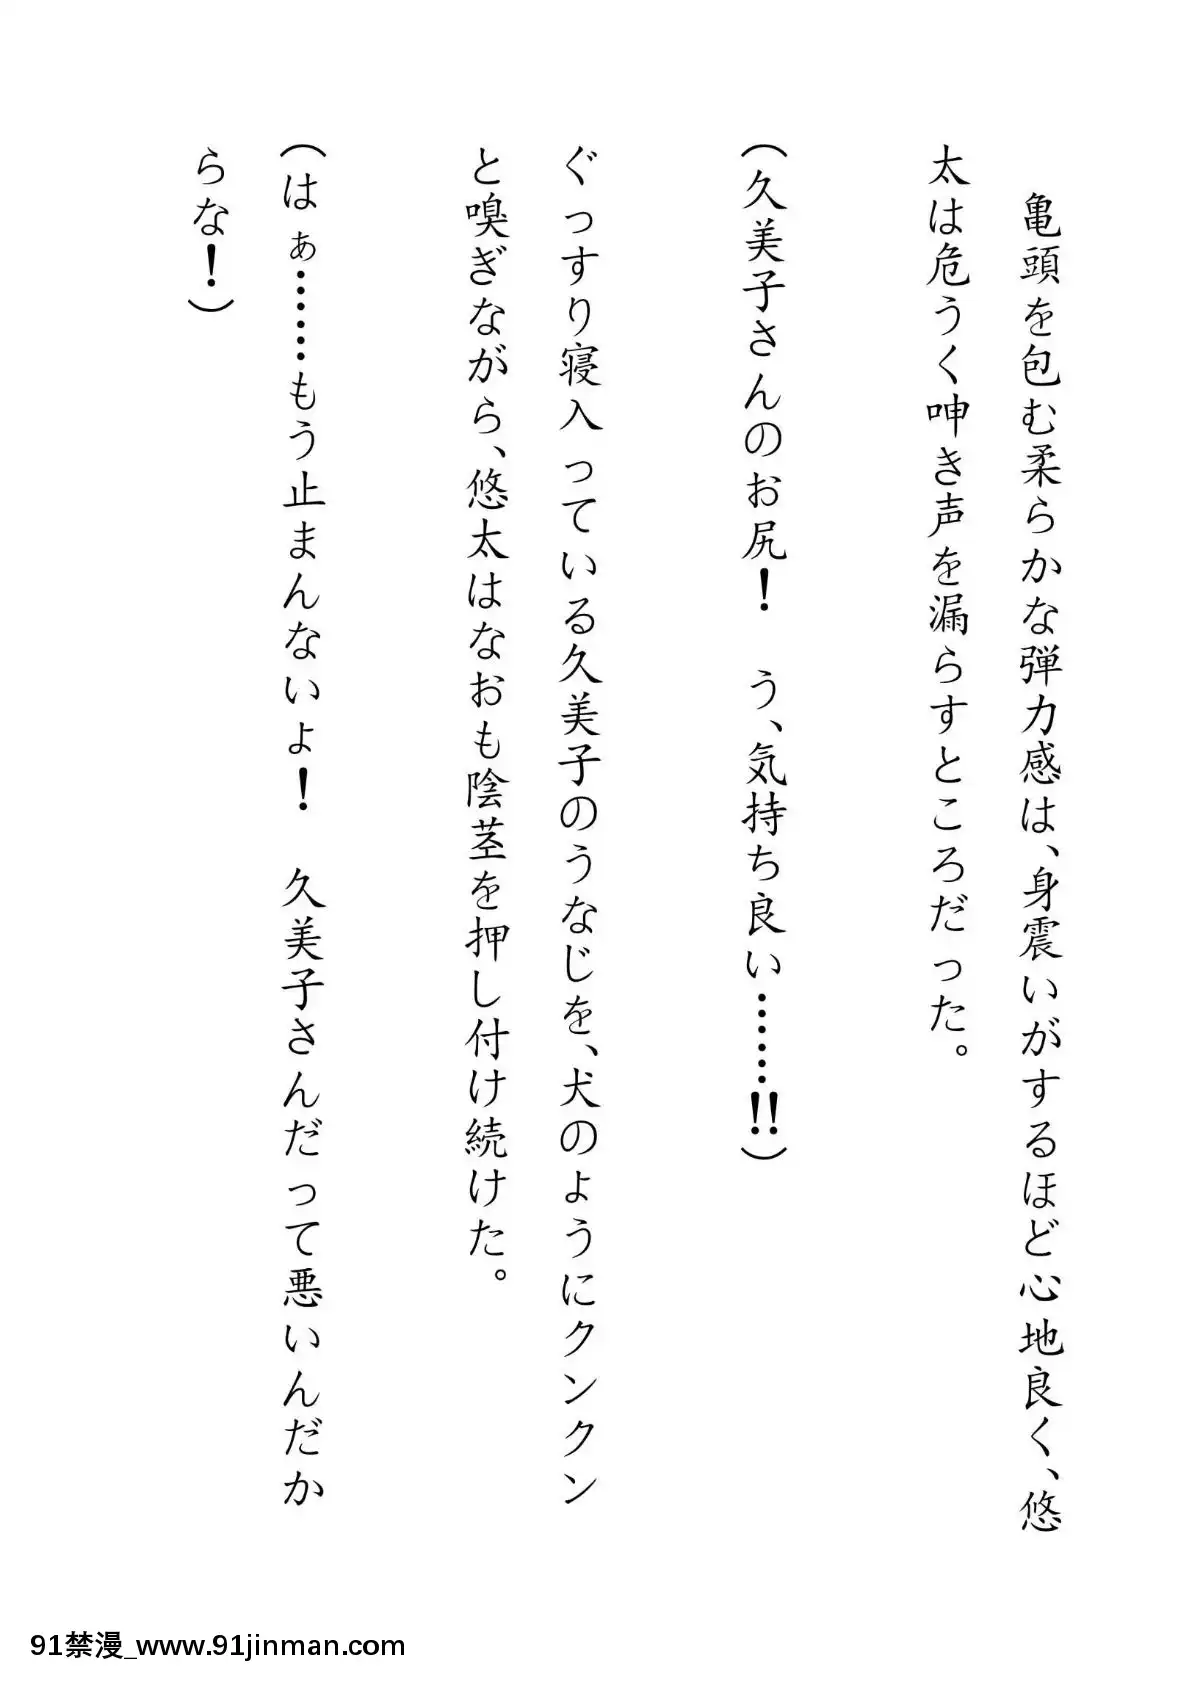 亀頭を包む柔らかな弾力感は、身震いがするほど心地良く、悠
太は危うく呻き声を漏らすところだった。
（久美子さんのお尻！　う、気持ち良い………!!）
ぐっすり寝入っている久美子のうなじを、犬のようにクンクン
と嗅ぎながら、悠太はなおも陰茎を押し付け続けた。
（はぁ………もう止まんないょ！　久美子さんだって悪いんだか
らな！）
91禁漫_www.91jinman.com